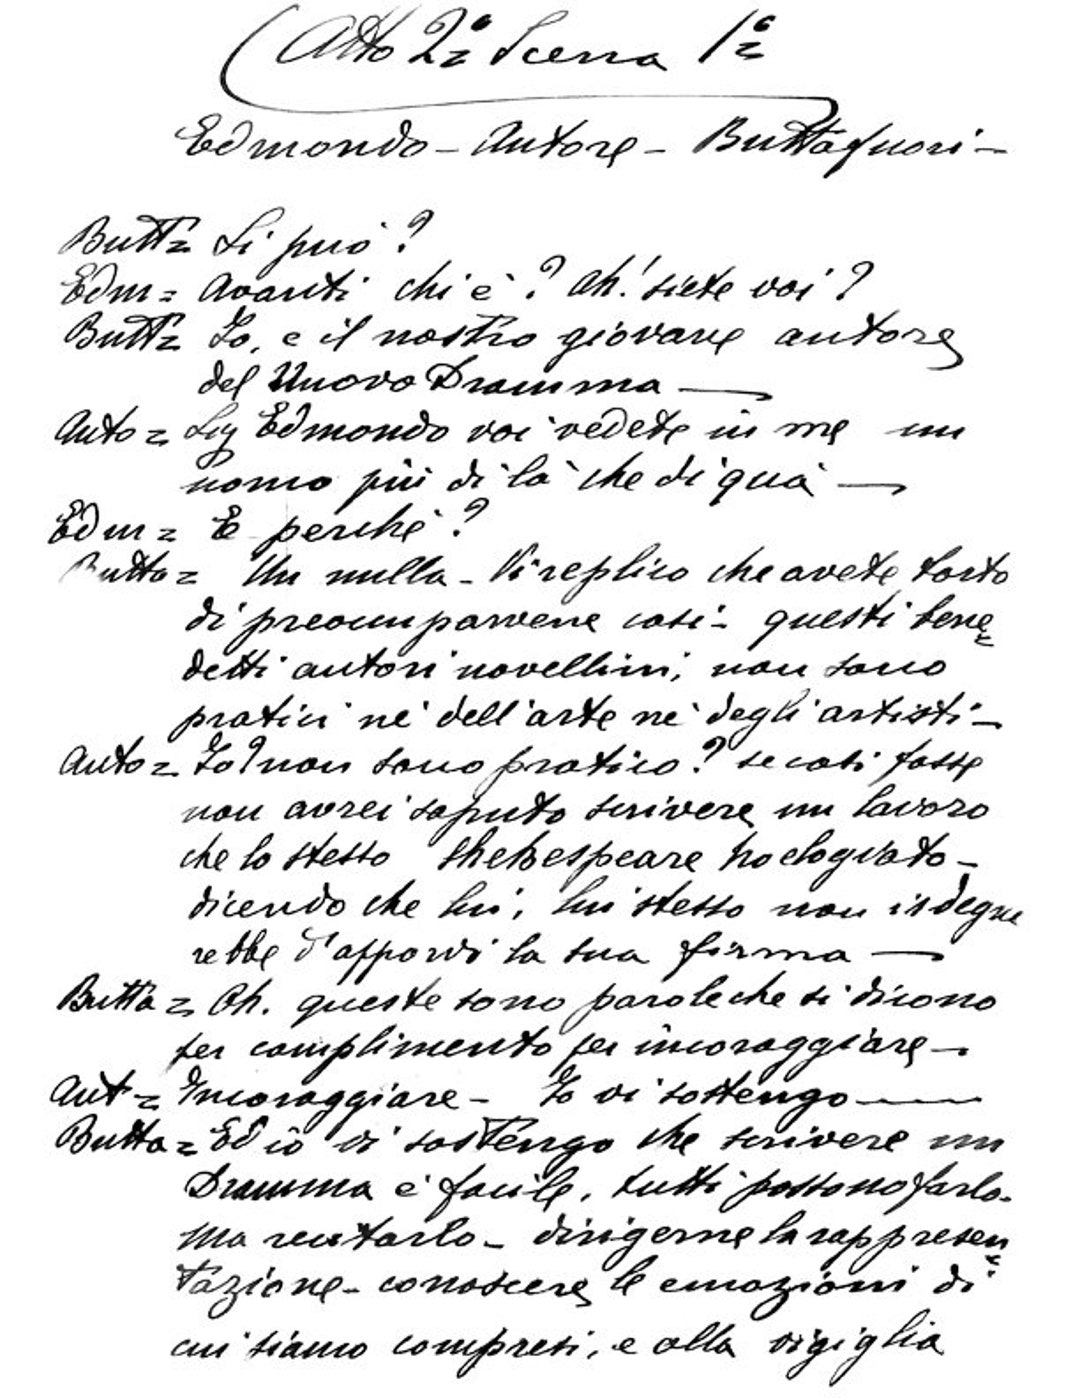 Atto 2º Scena 1ª
Edmondo - Autore - Buttafuori -
Butt = Si può ?
Edm = Avanti chi è ? Ah! siete voi ?
Butt = Io, e il nostro giovane autore
del Nuovo Dramma —
Auto = Sig Edmondo voi vedete in me un
uomo più di là che di qua —
Edm = E perchè ?
Butta = Un nulla - Vi replico che avete torto
di preocuparvene così - questi bene=
detti autori novellini, non sono
pratici nè dell'arte nè degli artisti -
Auto = Io? non sono pratico ? se così fosse
non avrei saputo scrivere un lavoro
che lo stesso Shekespeare ha elogiato -
dicendo che lui, lui stesso non isdegne
rebbe d'apporvi la sua firma —
Butta = Oh. queste sono parole che si dicono
per complimento per incoraggiare -
Aut = Incoraggiare - Io vi sostengo —
Butta = Ed io vi sostengo che scrivere un
Dramma è facile, tutti possono farlo.
Ma recitarlo - dirigerne la rappresen=
tazione - conoscere le emozioni di
cui siamo compresi, e alla vigiglia